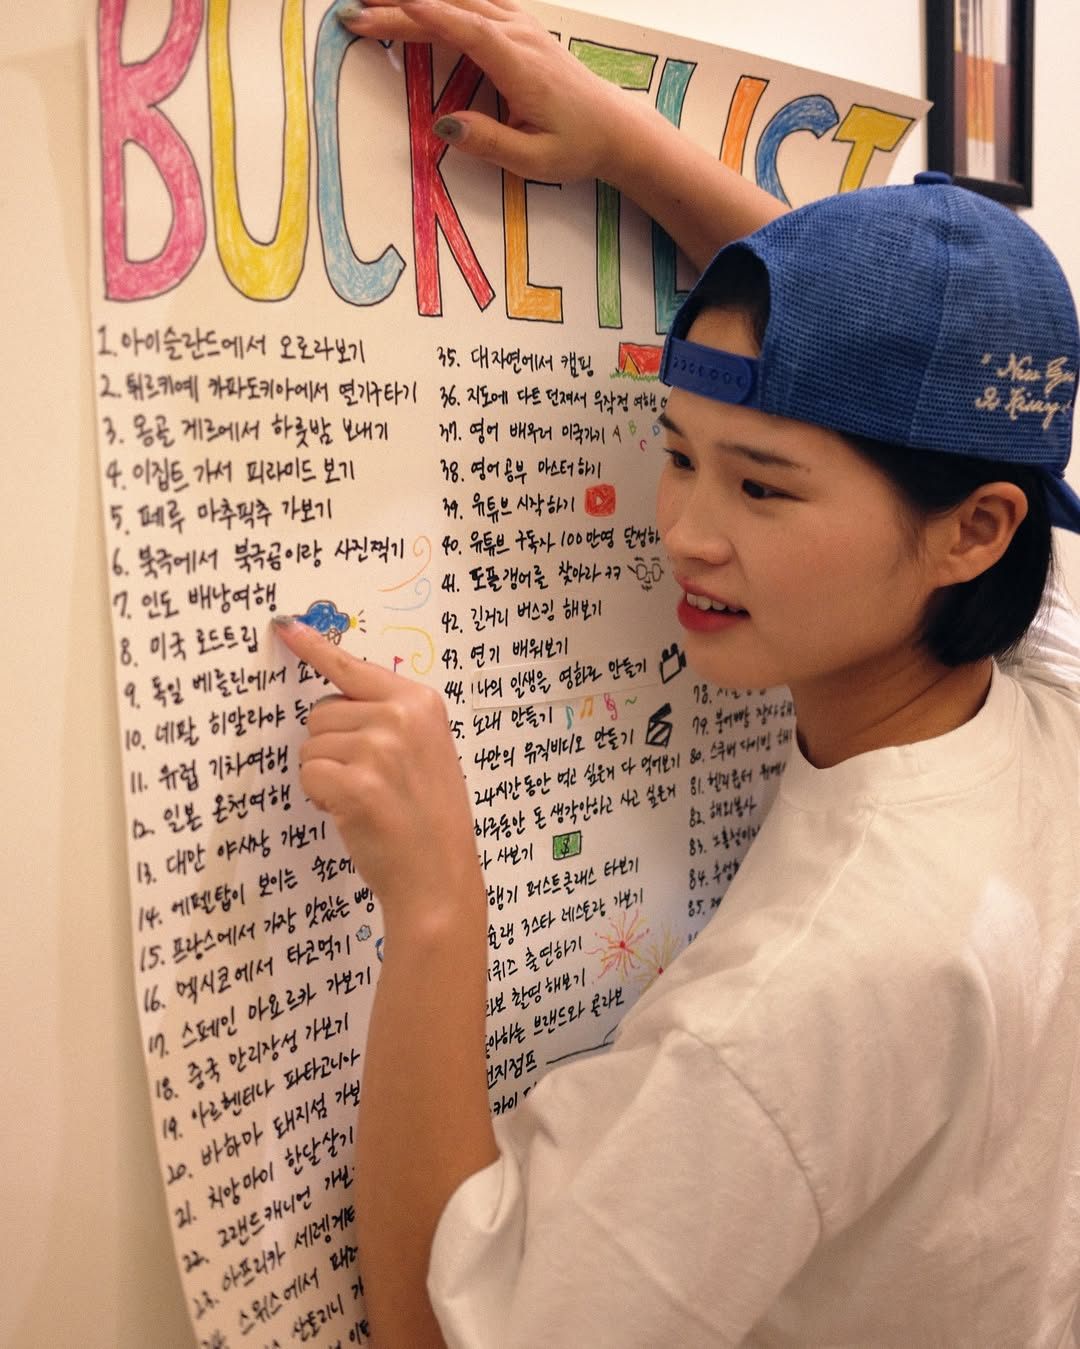 BUCKETLIST
1. 아이슬란드에서 오로라보기
2. 튀르키예 카파도키아에서 열기구타기
3. 몽골 게르에서 하룻밤 보내기
4. 이집트 가서 피라미드 보기
5. 페루 마추픽추 가보기
6. 북극에서 북극곰이랑 사진찍기
7. 인도 배낭여행
8. 미국 로드트립
9. 독일 베를린에서
10. 네팔 히말라야
11. 유럽 기차여행
12. 일본 온천여행
13. 대만 야시장 가보기
14. 에펠탑이 보이는 숙소에
15. 프랑스에서 가장 맛있는 빵
16. 멕시코에서 타코먹기
17. 스페인 마요르카 가보기
18. 중국 만리장성 가보기
19. 아르헨티나 파타고니아
20. 바하마 돼지섬 가보
21. 치앙마이 한달살기
22. 그랜드캐니언 가보
23. 아프리카 세렝게티
스위스에서
산토리니
35. 대자연에서 캠핑
36. 지도에 다트 던져서 무작정 여행
37. 영어 배우러 미국가기 A B C D
38. 영어공부 마스터하기
39. 유튜브 시작하기
40. 유튜브 구독자 100만명 달성하
41. 도플갱어를 찾아라 ㅋㅋ
42. 길거리 버스킹 해보기
43. 연기 배워보기
44. 나의 일생을 영화로 만들기
45. 노래 만들기
나만의 뮤직비디오 만들기
24시간동안 먹고 싶은거 다 먹어보기
하루동안 돈 생각안하고 사고 싶은거
다 사보기 $
행기 퍼스트클래스 타보기
슐랭 3스타 레스토랑 가보기
퀴즈 출연하기
화보 촬영해보기
좋아하는 브랜드와 콜라보
번지점프
카이
78.
79. 붕어빵 장사
80. 스쿠버 다이빙
81. 헬리콥터
82. 해외봉사
83.
84.
85.